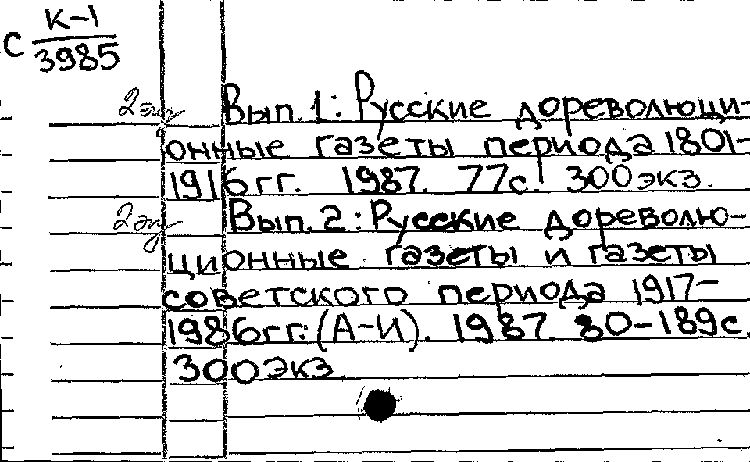 С К-1
3985
2 экз Вып. 1: Русские дореволюци-
онные газеты периода 1801-
1916гг. 1987. 77с. 300экз.
2 экз Вып. 2: Русские дореволю-
ционные газеты и газеты
советского периода 1917-
1986гг: (А-И). 1987. 80-189с.
300экз.